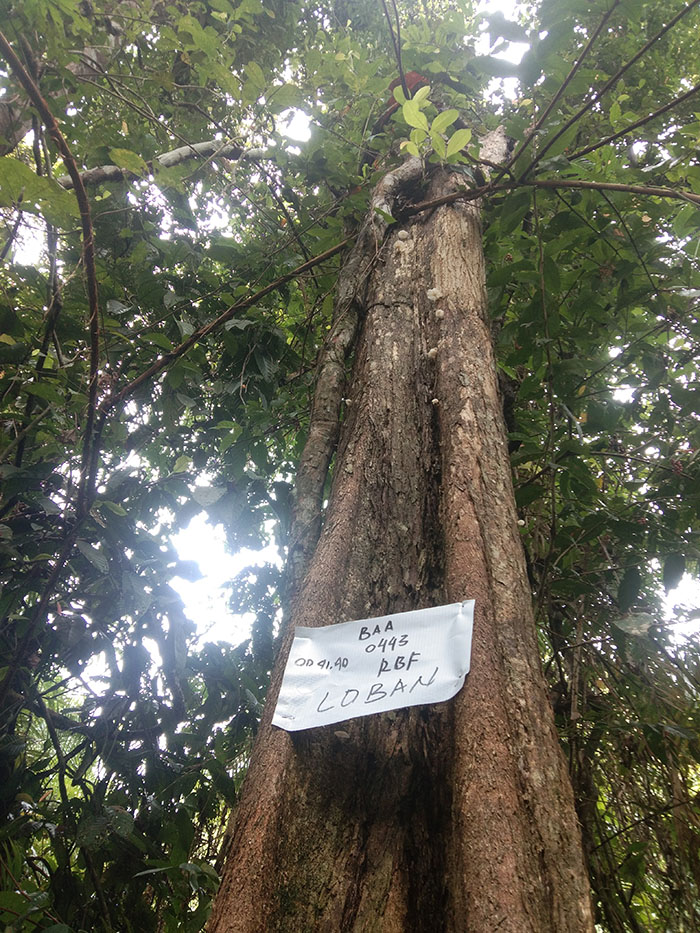 BAA
0443
OD 41.40 RBF
LOBAN